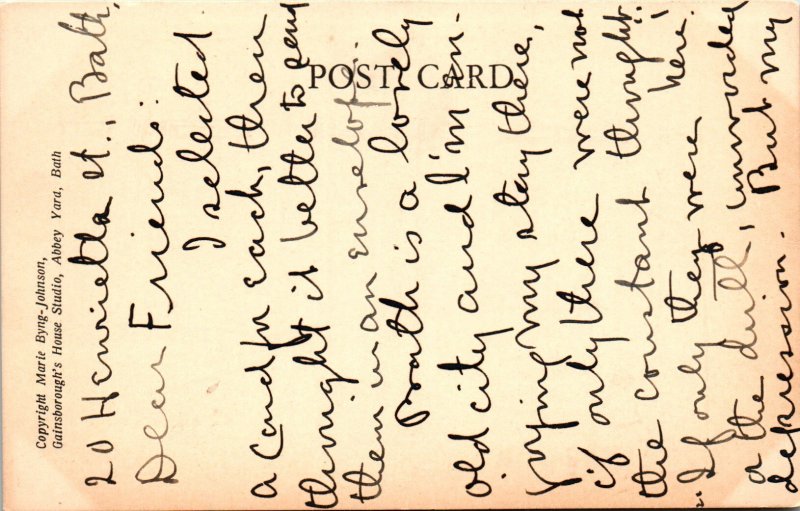 POST CARD
Copyright Marie Byng-Johnson,
Gainsborough's House Studio, Abbey Yard, Bath
20 Henrietta St., Bath,
Dear Friends:
I selected
a Card for each, then
thought it better to send
them in an envelope.
Bath is a lovely
old city and I'm en-
joying my stay there,
if only there were not
the constant thought:
"If only they were here,"
or the dull, unworded
depression. But my